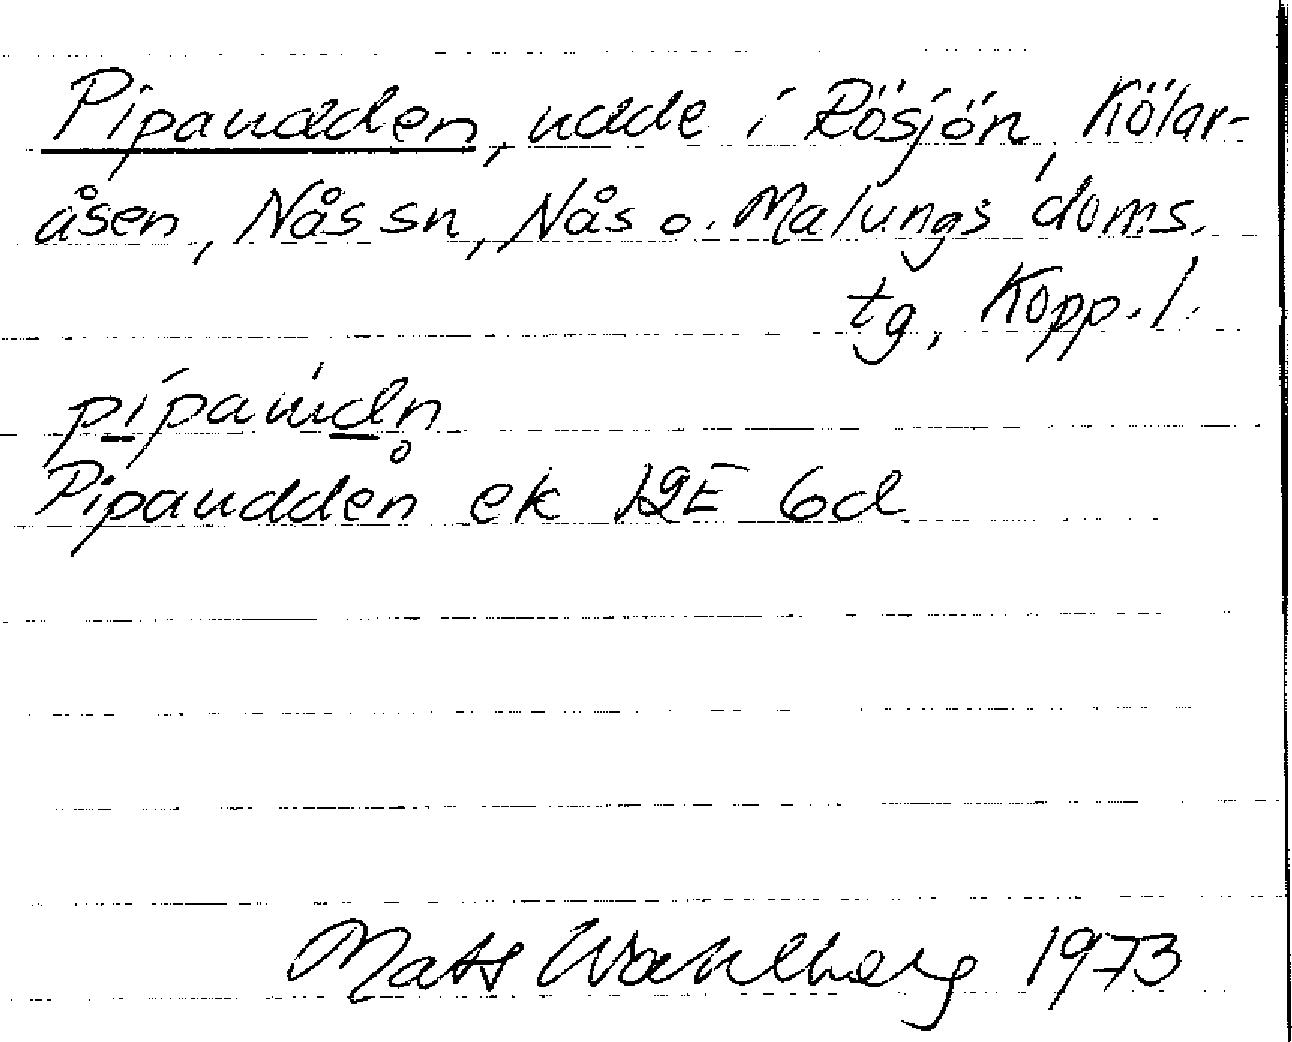 Pipaudden, udde i Rösjön, Kölar-
åsen, Nås sn, Nås o. Malungs doms.
tg, Kopp. l.
pi̲pàùd̲n̥
Pipaudden ek 12E 6d
Mats Wahlberg 1973